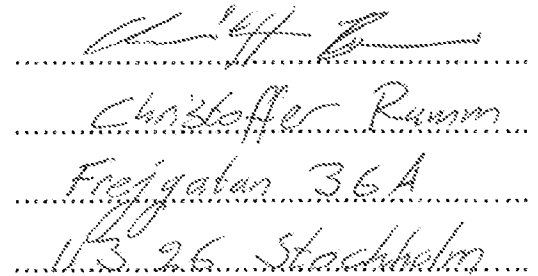 Christoffer Ramm
Frejgatan 36A
113 26 Stockholm